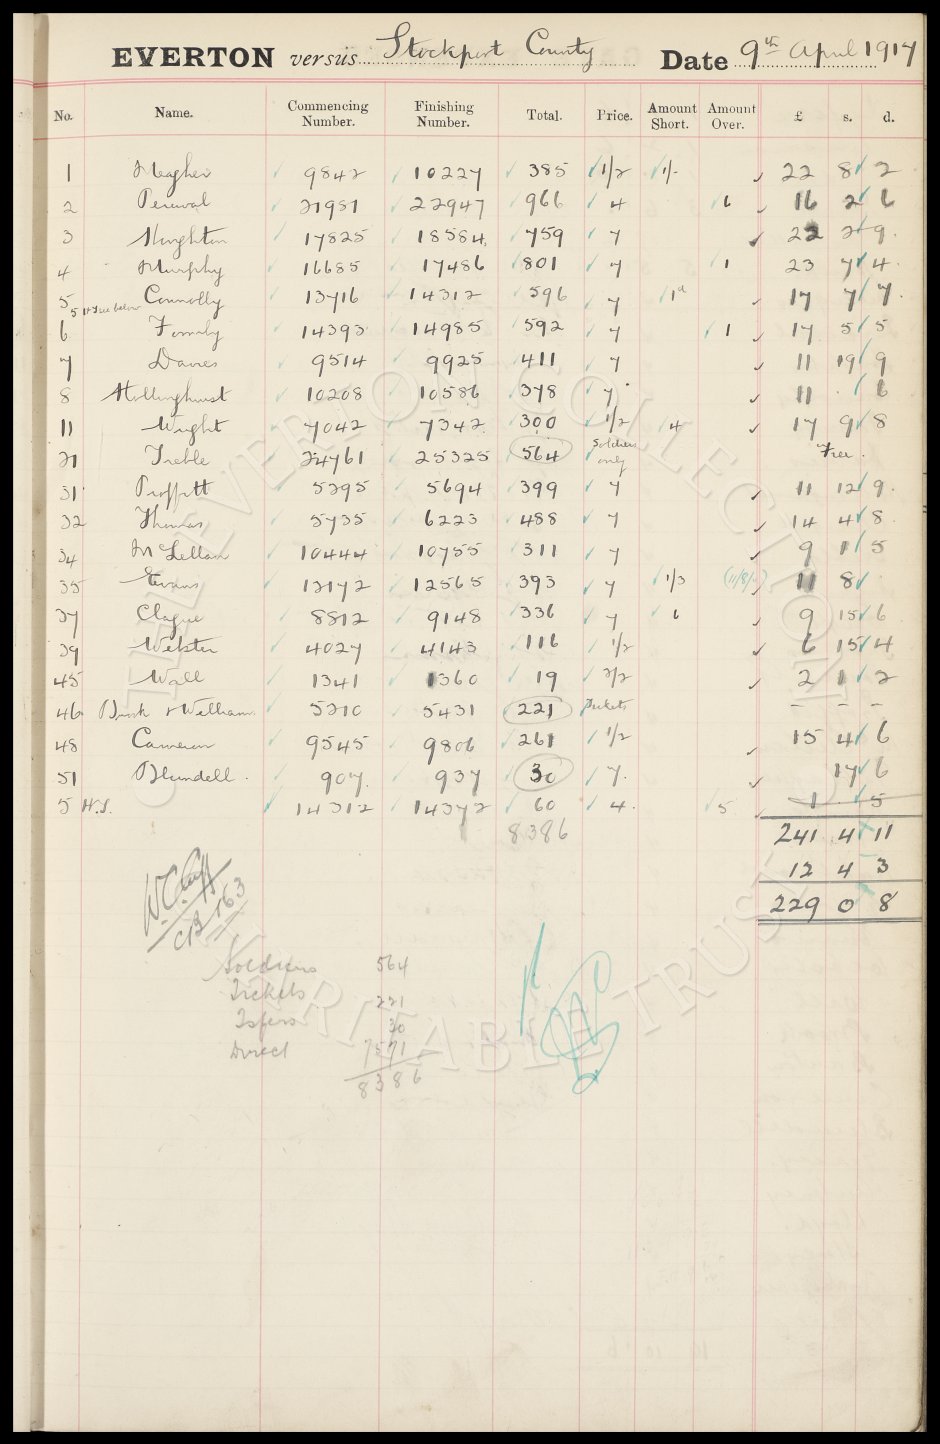 EVERTON versus Stockport County Date 9th April 1917
No. Name. Commencing Number. Finishing Number. Total. Price. Amount Short. Amount Over. £ s. d.
1 Meagher 9842 10227 385 1/2 1/- 22 8 2
2 Percival 21981 22947 966 4 6 16 2 6
3 Houghton 17825 18584 759 7 22 2 9
4 Murphy 16685 17486 801 7 1 23 7 4
5 Connolly 13716 14312 596 7 1d 17 7 7
5 HT see below
6 Formby 14393 14985 592 7 1 17 5 5
7 Davies 9514 9925 411 7 11 19 9
8 Hollinghurst 10208 10586 378 7 11 . 6
11 Wright 7042 7342 300 1/2 4 17 9 8
21 Treble 24761 25325 564 Soldiers only Free.
31 Proffitt 5295 5694 399 7 11 12 9
32 Thomas 5735 6223 488 7 14 4 8
34 McLellan 10444 10755 311 7 9 1 5
35 Evans 12172 12565 393 7 1/3 (11/8/-) 11 8
37 Clague 8812 9148 336 7 6 9 15 6
39 Webster 4027 4143 116 1/2 6 15 4
45 Wall 1341 1360 19 2/2 2 1 2
46 Brook & Williams 5210 5431 221 Tickets - - -
48 Cameron 9545 9806 261 1/2 15 4 6
51 Blundell. 907 937 30 7. 17 6
5 H.T. 14312 14372 60 4. 5 1 . 5
8386 241 4 11
12 4 3
229 0 8
W.C. Cuff
CB 163
Soldiers 564
Tickets 221
Tsfers 30
Direct 7571
8386
THE EVERTON COLLECTION
CHARITABLE TRUST